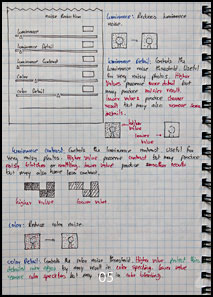 Noise Reduction
Luminance
Luminance Detail
Luminance Contrast
Color
Color Detail
Luminance: Reduces luminance noise.
Luminance Detail: Controls the luminance noise threshold. Useful
for very noisy photos. Higher
values preserve more detail but
may produce noisier results.
lower values produce cleaner
results but may also remove some
details.
higher value
lower value
Luminance contrast: Controls the luminance contrast. Useful for
very noisy photos. Higher value preserve contrast but may produce
noisy blotches or mottling. lower value produce smoother results
but may also have less contrast.
higher value
lower value
Color: Reduce color noise.
Color Detail: Controls the color noise threshold. Higher value protect thin
detailed color edges but may result in color speckling. lower value
remove color speckles but may result in color bleeding.
05